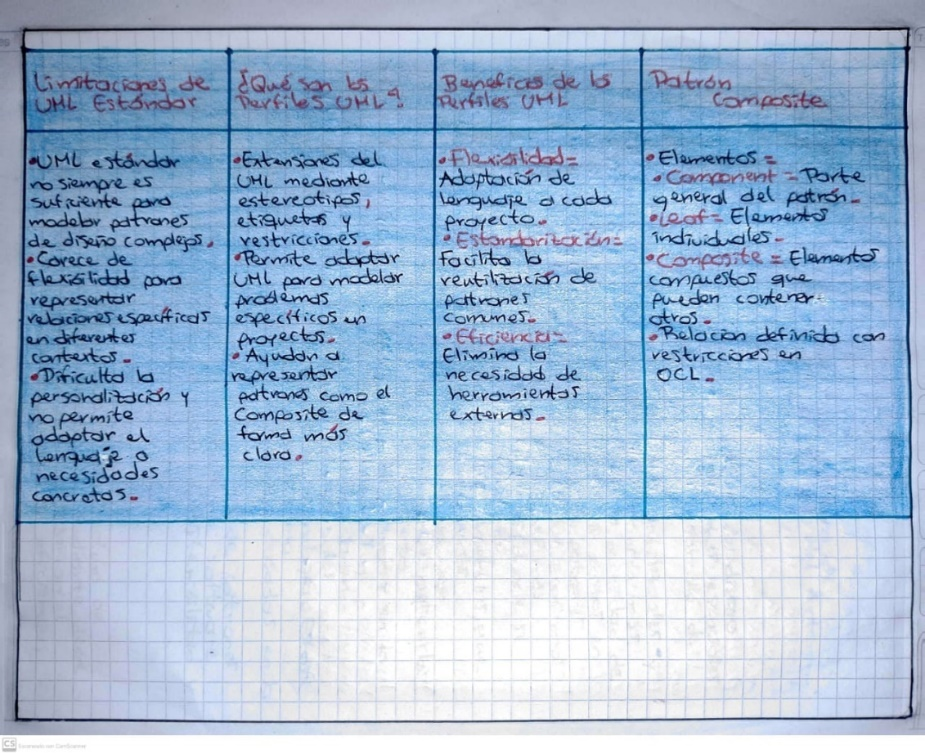 Limitaciones de
UML Estándar
•UML estándar
no siempre es
suficiente para
modelar patrones
de diseño complejos.
•Carece de
flexibilidad para
representar
relaciones específicas
en diferentes
contextos.
•Dificulta la
personalización y
no permite
adaptar el
lenguaje a
necesidades
concretas.
¿Qué son los
Perfiles UML?
•Extensiones del
UML mediante
estereotipos,
etiquetas y
restricciones.
•Permite adaptar
UML para modelar
problemas
específicos en
proyectos.
•Ayudan a
representar
patrones como el
Composite de
forma más
clara.
Beneficios de los
Perfiles UML
•Flexibilidad=
Adaptación de
lenguaje a cada
proyecto.
•Estandaritación=
Facilita la
reutilización de
patrones
comunes.
•Eficiencia=
Elimina la
necesidad de
herramientas
externas.
Patrón
Composite
•Elementos =
•Component = Parte
general del patrón.
•Leaf = Elementos
individuales.
•Composite = Elementos
compuestos que
pueden contener
otros.
•Relación definida con
restricciones en
OCL.
CS Escaneado con CamScanner